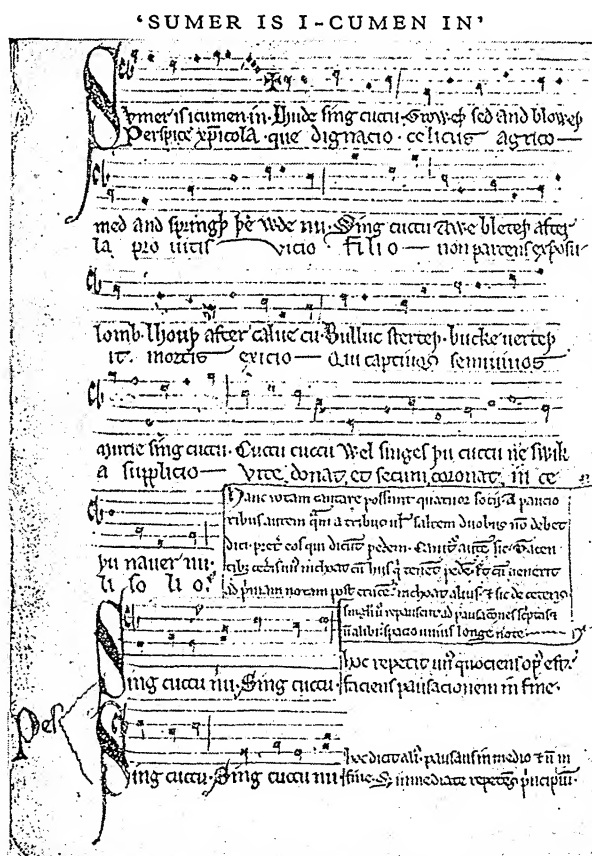 'SUMER IS I-CUMEN IN'
Sumer is icumen in· Lhude sing cuccu· Groweþ sed and bloweþ
Perspice xp̄icola· que dignacio· celicus agrico—
med and springþ þe wde nu· Sing cuccu Awe bleteþ after
la pro uitis vicio filio— non parcens exposu-
lomb· lhouþ after calue cu· Bulluc sterteþ· bucke uerteþ
it· mortis exicio— Qui captiuos semiuiuos
Murie sing cuccu· Cuccu cuccu Wel singes þu cuccu ne swik
a supplicio— Vite donat et secum coronat in ce
þu nauer nu·
li solio·
Hanc rotam cantare possunt quatuor socij· A paucio
ribus autem
a tribus
saltem duobus
debet
dici· pret̄ eos qui dicunt pedem·
sic·
ad
notam post crucē· inchoat alius· et sic de ceteris
ad pausaciones scriptas
alibi· spacio unius longe note·
Sing cuccu nu· Sing cuccu·
hoc repetit un⁹ quociens opꝰ est·
faciens pausacionem in fine·
Pes
Sing cuccu· Sing cuccu nu
hoc dicit aliꝰ· pausans in medio
in
fine· Sꝫ immediate repetēs p̄ncipiū·